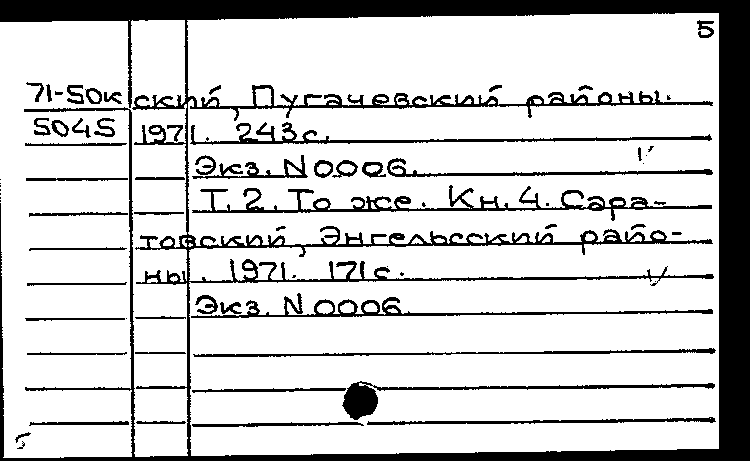 5
71-50к ский, Пугачевский районы.
5045 1971. 243с.
Экз. N0006.
Т. 2. То же. Кн. 4. Сара-
товский, Энгельсский райо-
ны. 1971. 171с.
Экз. N0006.
5